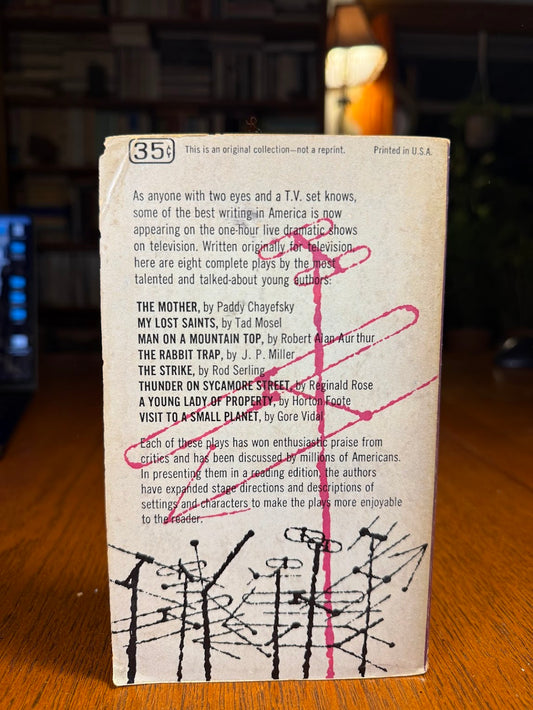 35¢ This is an original collection—not a reprint. Printed in U.S.A.
As anyone with two eyes and a T.V. set knows,
some of the best writing in America is now
appearing on the one-hour live dramatic shows
on television. Written originally for television,
here are eight complete plays by the most
talented and talked-about young authors:
THE MOTHER, by Paddy Chayefsky
MY LOST SAINTS, by Tad Mosel
MAN ON A MOUNTAIN TOP, by Robert Alan Aurthur
THE RABBIT TRAP, by J. P. Miller
THE STRIKE, by Rod Serling
THUNDER ON SYCAMORE STREET, by Reginald Rose
A YOUNG LADY OF PROPERTY, by Horton Foote
VISIT TO A SMALL PLANET, by Gore Vidal
Each of these plays has won enthusiastic praise from
critics and has been discussed by millions of Americans.
In presenting them in a reading edition, the authors
have expanded stage directions and descriptions of
settings and characters to make the plays more enjoyable
to the reader.